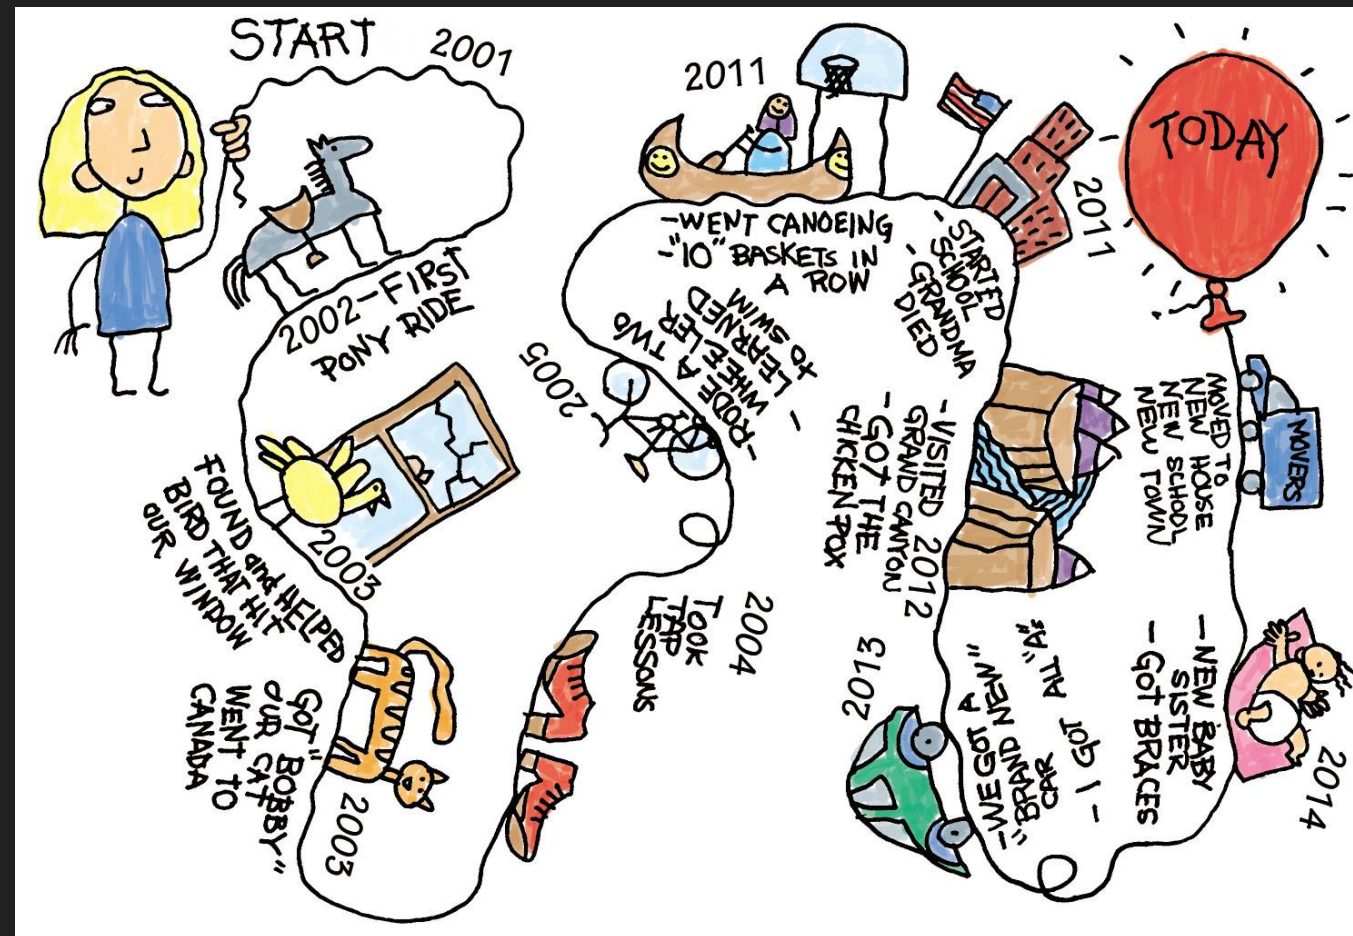 START
2001
2002-FIRST
PONY RIDE
FOUND and HELPED
BIRD THAT HIT
OUR WINDOW
2003
GOT "BOBBY"
OUR CAT
WENT TO
CANADA
2003
TOOK
TAP
LESSONS
2004
2005
-RODE A TWO
WHEELER
- LEARNED
TO SWIM
2011
-WENT CANOEING
-"10" BASKETS IN
A ROW
2011
-STARTED
SCHOOL
-GRANDMA
DIED
-VISITED 2012
GRAND CANYON
-GOT THE
CHICKEN POX
2013
-WE GOT A
"BRAND NEW"
CAR
- I GOT ALL "A"s
-NEW BABY
SISTER
-GOT BRACES
2014
MOVED TO
NEW HOUSE
NEW SCHOOL
NEW TOWN
MOVERS
TODAY